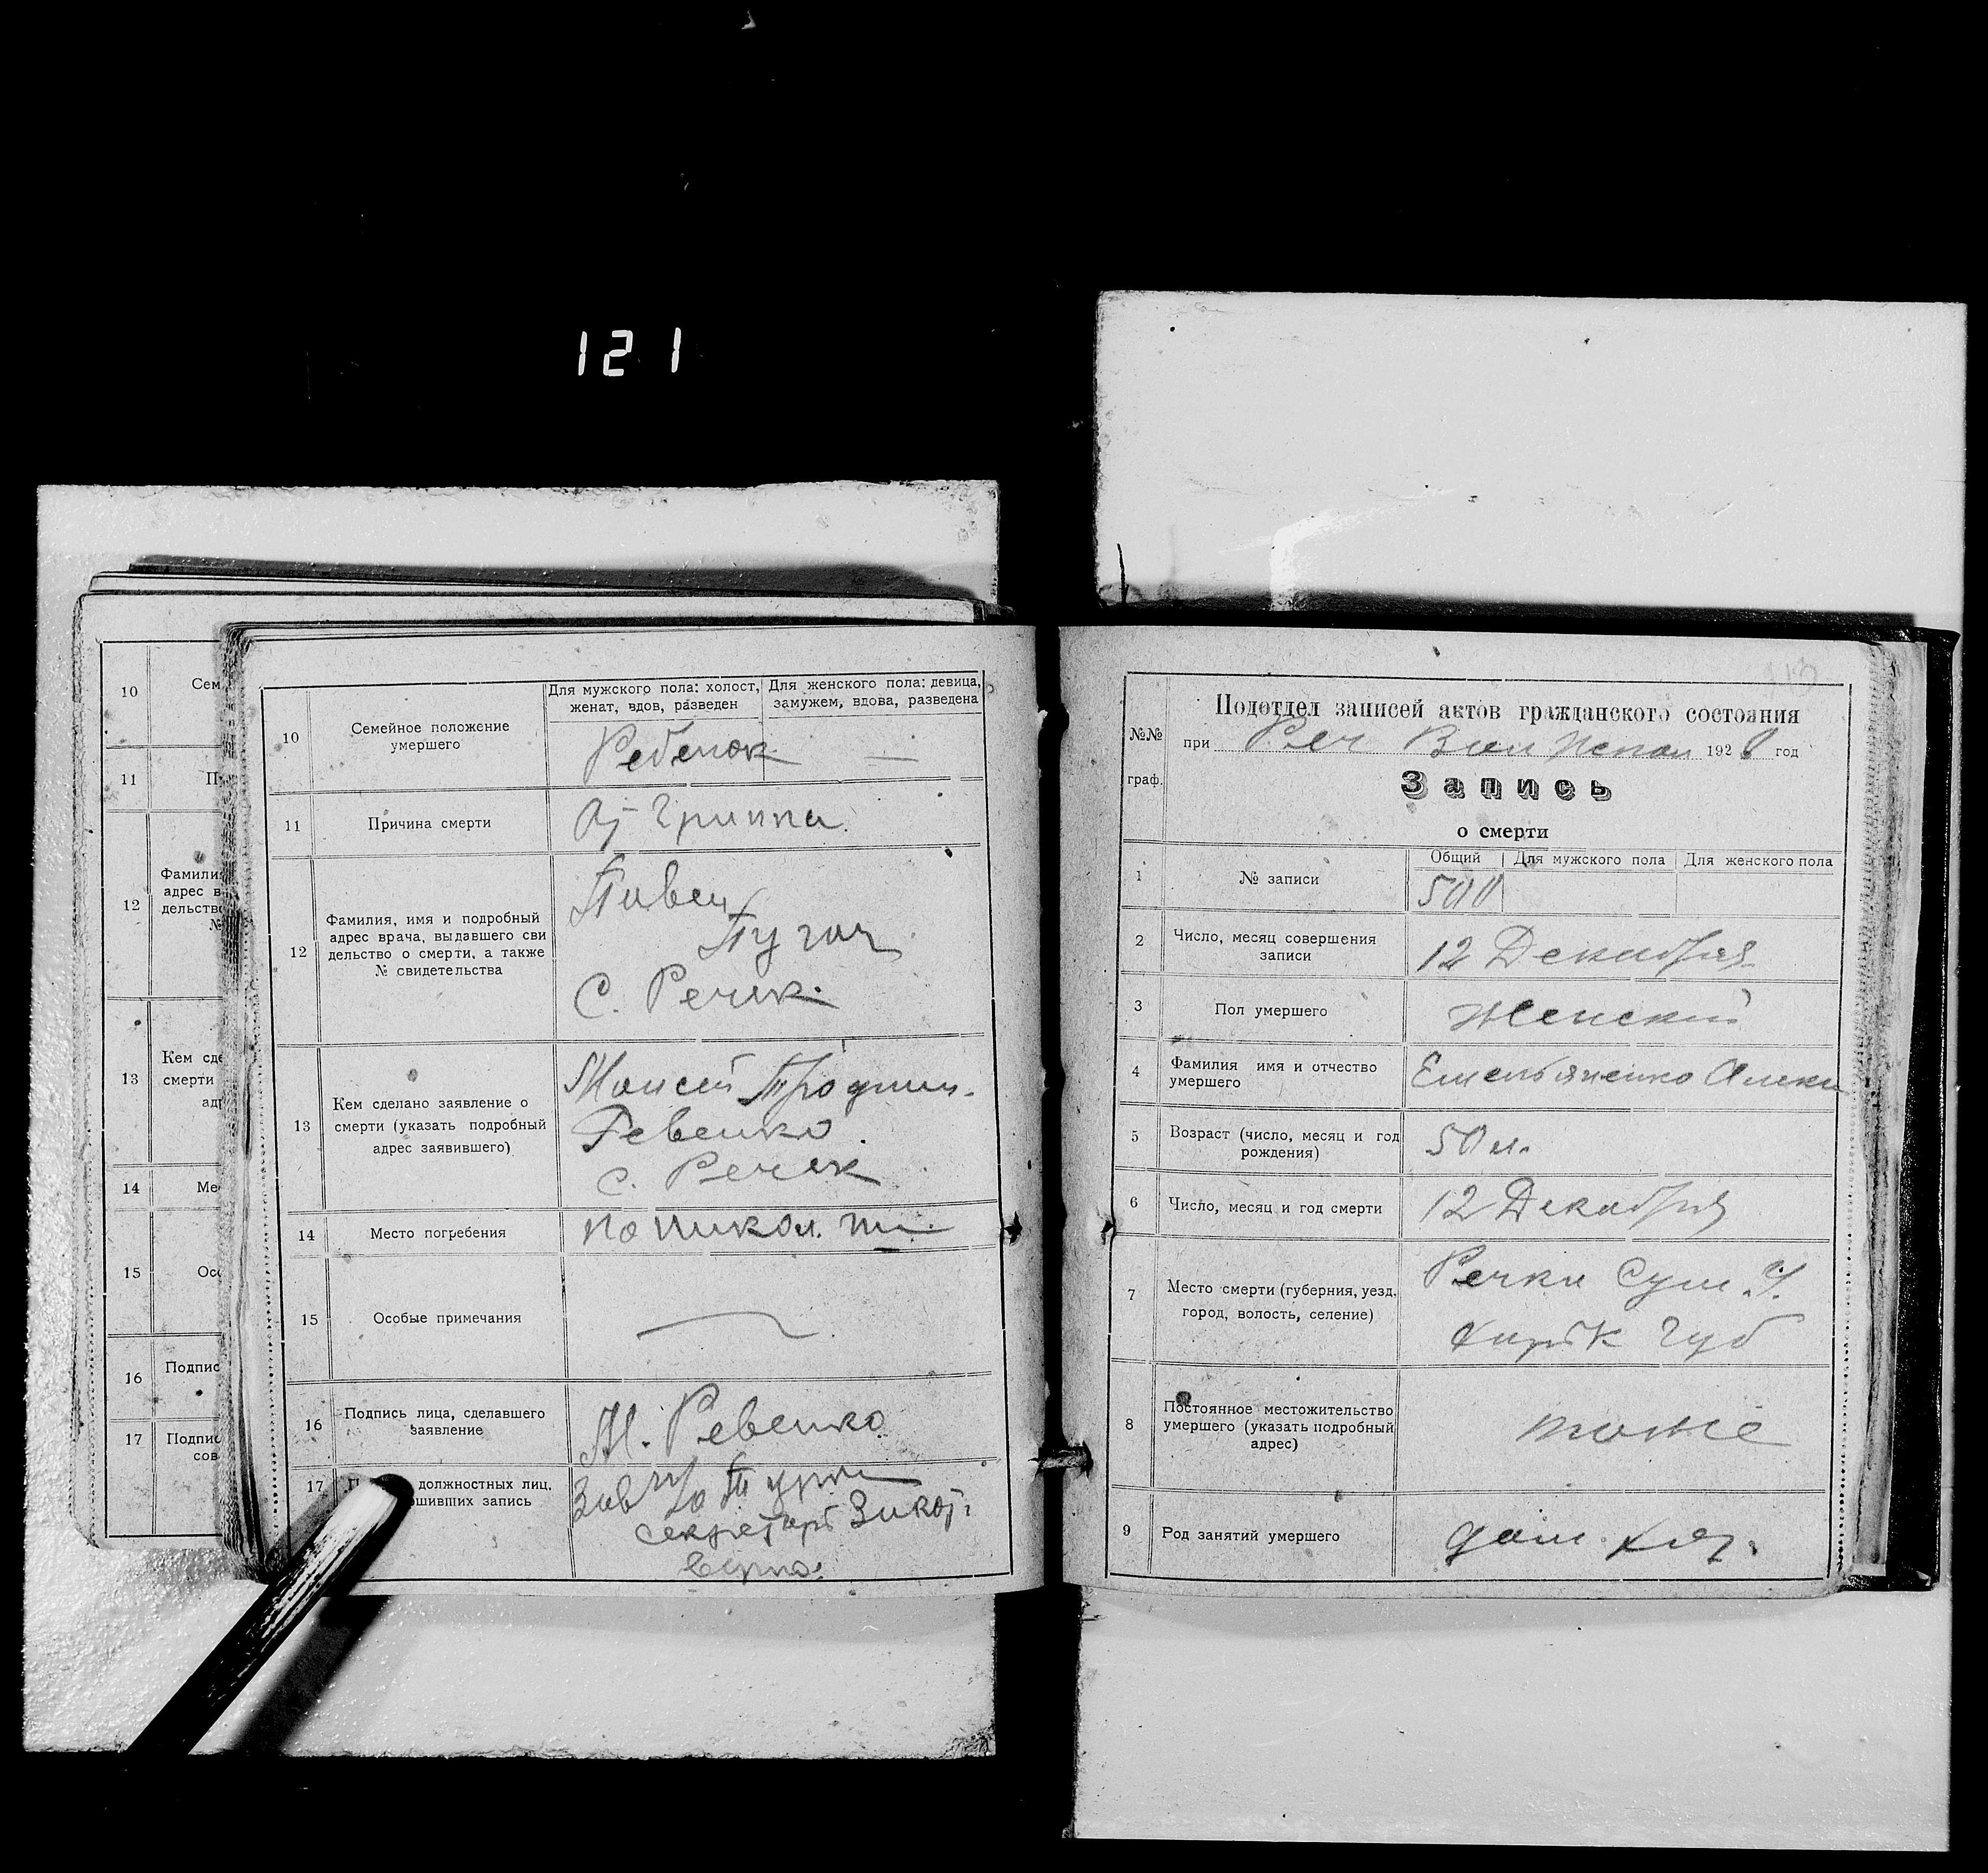 121
10
Сем
11
П
12
Фамилия
адрес в
дельство
№
13
Кем сде
смерти
адр
14
Ме
15
Осо
16
Подпис
17
Подпис
сов
10
Семейное положение
умершего
Для мужского пола: холост,
женат, вдов, разведен
Для женского пола: девица,
замужем, вдова, разведена
Ребенок —
11
Причина смерти
От Гриппа.
12
Фамилия, имя и подробный
адрес врача, выдавшего сви
дельство о смерти, а также
№ свидетельства
Пивен
Пугач
С. Речек.
13
Кем сделано заявление о
смерти (указать подробный
адрес заявившего)
Моисей
Ревенко
с. Речек
14
Место погребения
15
Особые примечания
16
Подпись лица, сделавшего
заявление
М. Ревенко
17
должностных лиц,
ршивших запись
секретарь
Верно:
№№
граф.
Подотдел записей актов гражданского состояния
при Реч Вол Испол 192 год
Запись
о смерти
1
№ записи
Общий
Для мужского пола
Для женского пола
500
2
Число, месяц совершения
записи
12 Декабря
3
Пол умершего
Женский
4
Фамилия имя и отчество
умершего
Емельяненко
5
Возраст (число, месяц и год
рождения)
50 л.
6
Число, месяц и год смерти
12 Декабря
7
Место смерти (губерния, уезд,
город, волость, селение)
Речки Сум. У.
Харьк Губ
8
Постоянное местожительство
умершего (указать подробный
адрес)
тоже
9
Род занятий умершего
дом. хоз.